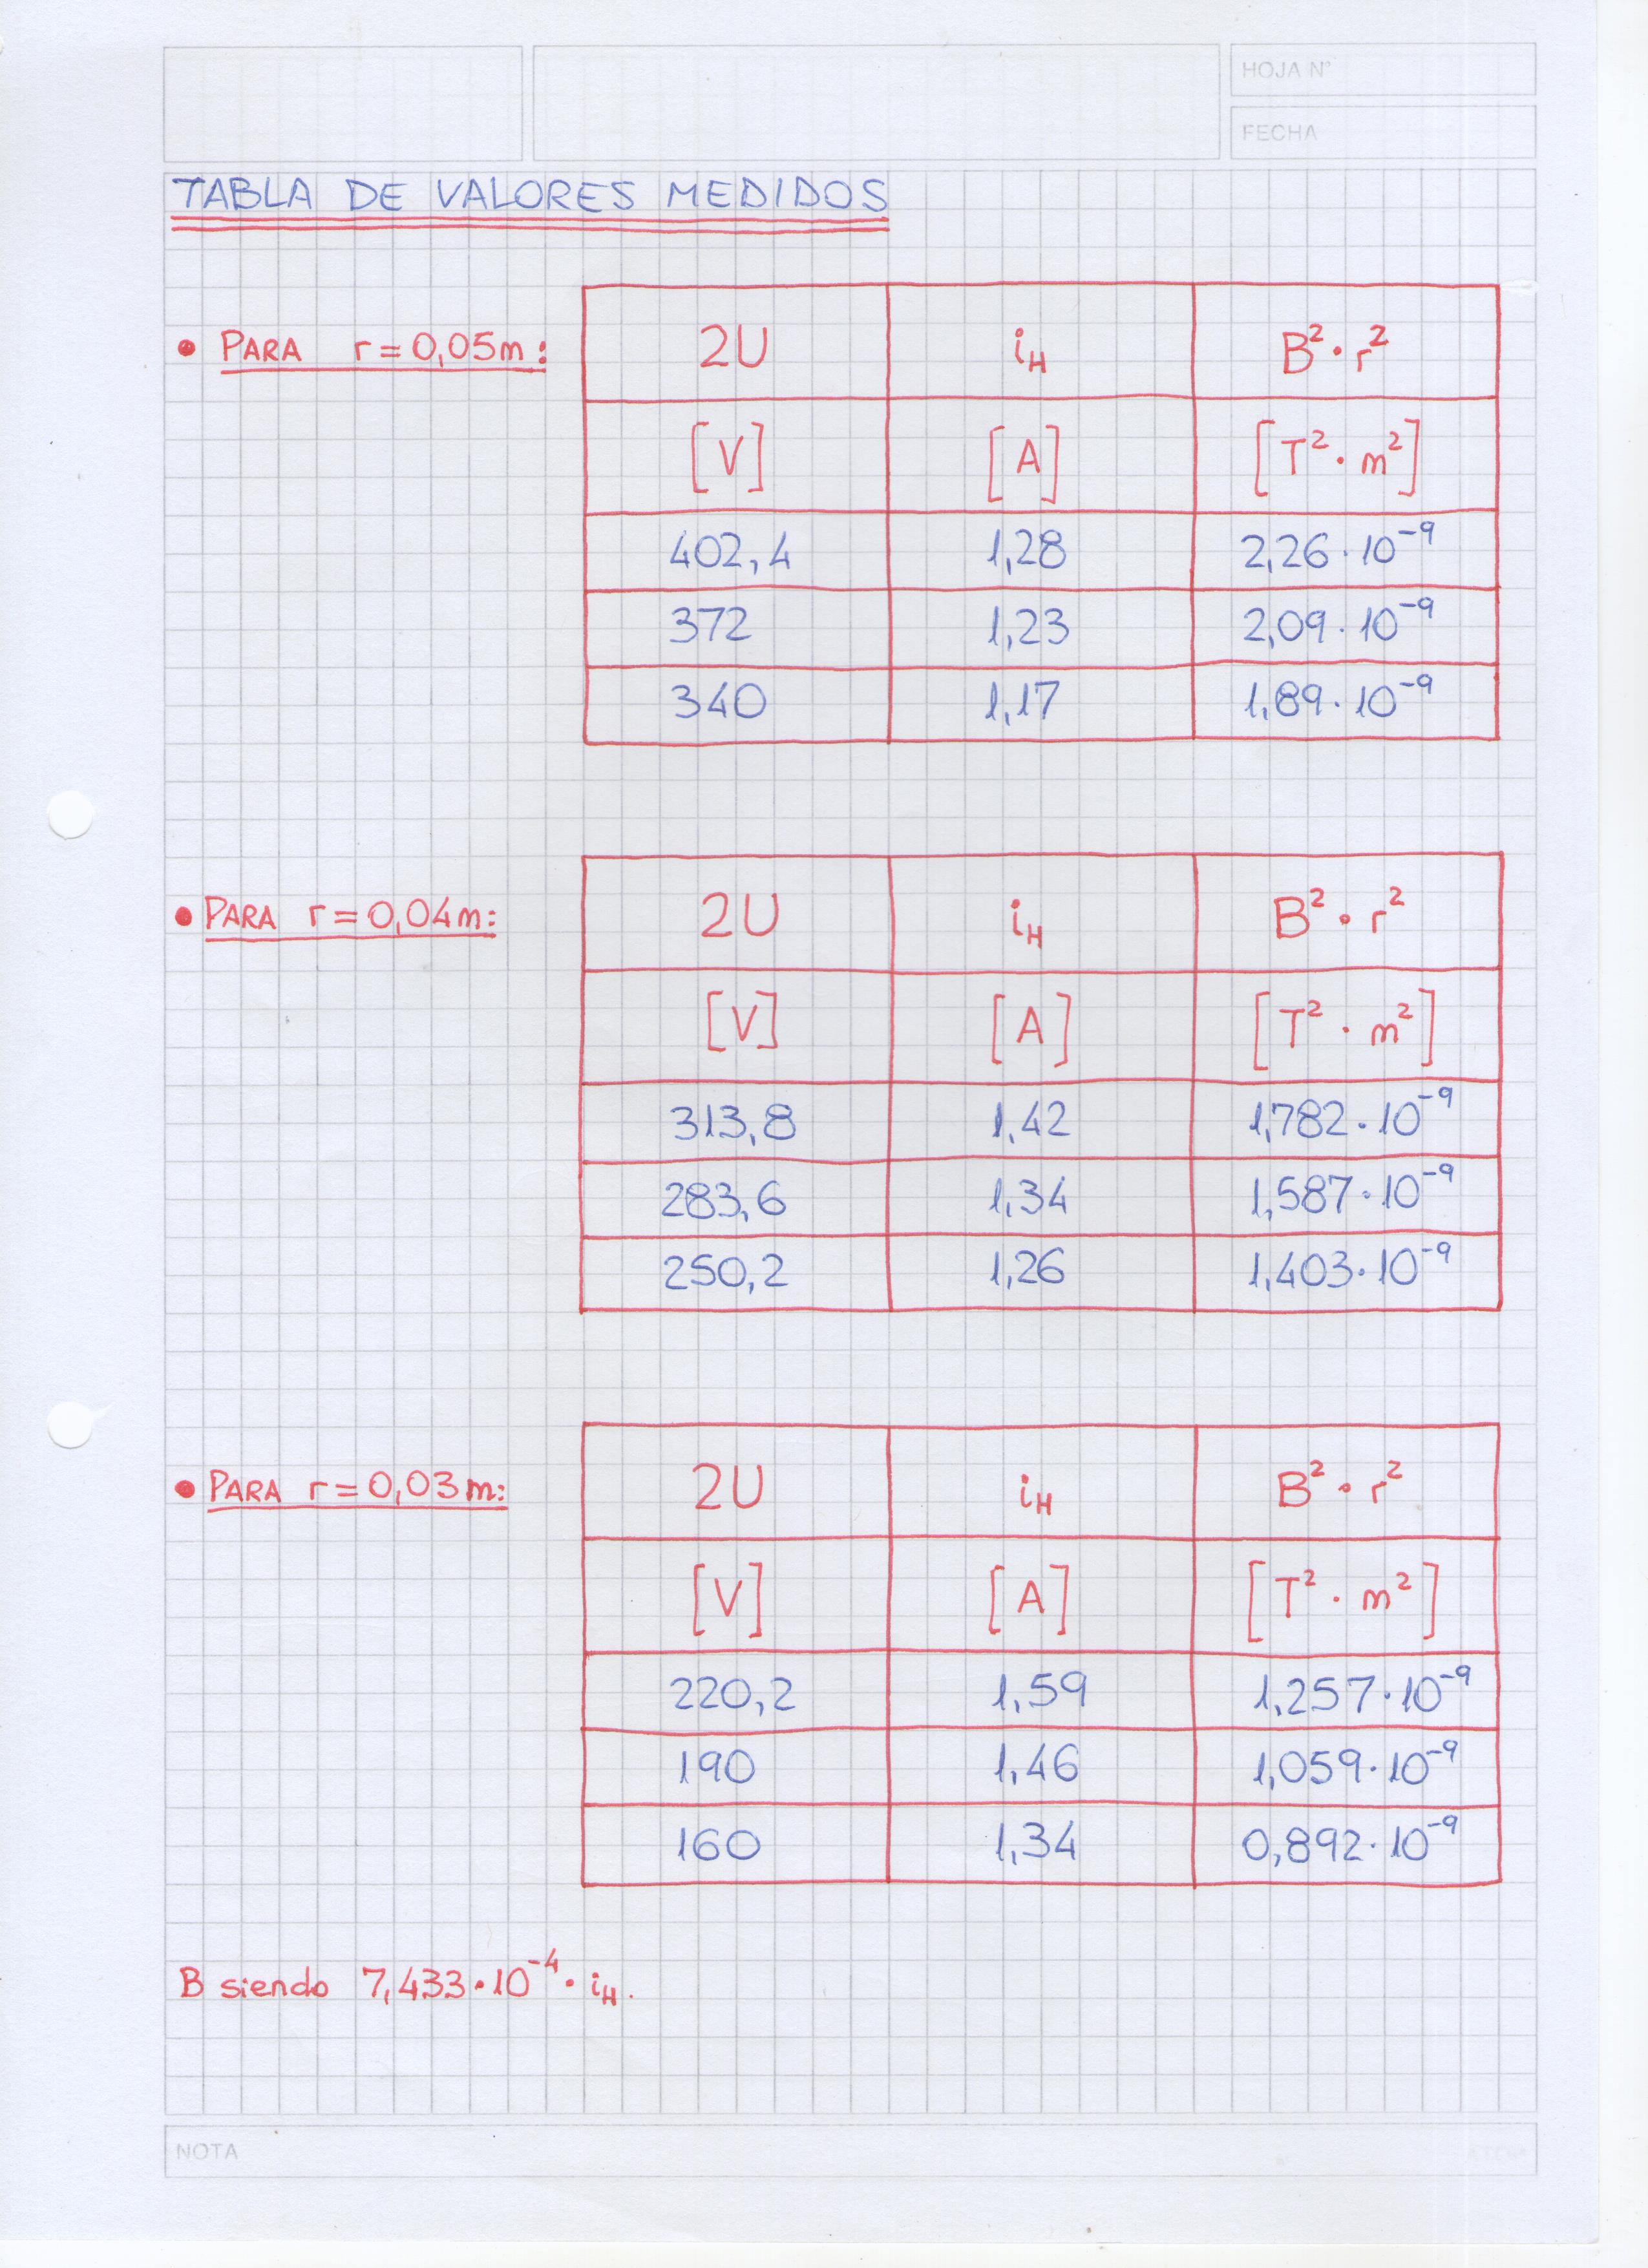 HOJA Nº
FECHA
TABLA DE VALORES MEDIDOS
• PARA r = 0,05m:
2U iH B²·r²
[V] [A] [T²·m²]
402,4 1,28 2,26·10⁻⁹
372 1,23 2,09·10⁻⁹
340 1,17 1,89·10⁻⁹
• PARA r = 0,04m:
2U iH B²·r²
[V] [A] [T²·m²]
313,8 1,42 1,782·10⁻⁹
283,6 1,34 1,587·10⁻⁹
250,2 1,26 1,403·10⁻⁹
• PARA r = 0,03m:
2U iH B²·r²
[V] [A] [T²·m²]
220,2 1,59 1,257·10⁻⁹
190 1,46 1,059·10⁻⁹
160 1,34 0,892·10⁻⁹
B siendo 7,433·10⁻⁴·iH.
NOTA